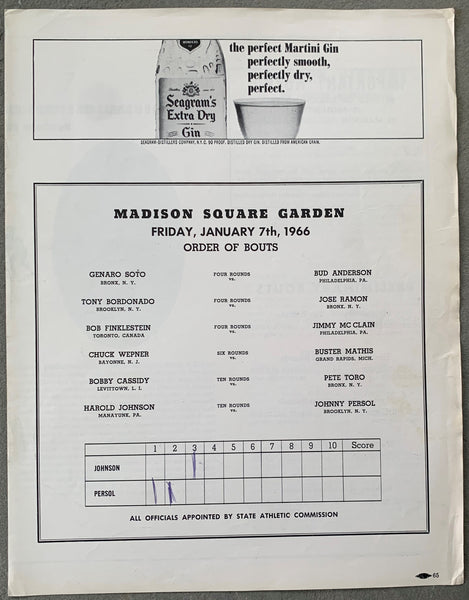 the perfect Martini Gin
perfectly smooth,
perfectly dry,
perfect.
Seagram's
Extra Dry
Gin
SEAGRAM-DISTILLERS COMPANY, N.Y.C. 90 PROOF. DISTILLED DRY GIN. DISTILLED FROM AMERICAN GRAIN.
MADISON SQUARE GARDEN
FRIDAY, JANUARY 7th, 1966
ORDER OF BOUTS
GENARO SOTO FOUR ROUNDS BUD ANDERSON
BRONX, N. Y. vs. PHILADELPHIA, PA.
TONY BORDONADO FOUR ROUNDS JOSE RAMON
BROOKLYN, N. Y. vs. BRONX, N. Y.
BOB FINKLESTEIN FOUR ROUNDS JIMMY MC CLAIN
TORONTO, CANADA vs. PHILADELPHIA, PA.
CHUCK WEPNER SIX ROUNDS BUSTER MATHIS
BAYONNE, N. J. vs. GRAND RAPIDS, MICH.
BOBBY CASSIDY TEN ROUNDS PETE TORO
LEVITTOWN, L. I. vs. BRONX, N. Y.
HAROLD JOHNSON TEN ROUNDS JOHNNY PERSOL
MANAYUNK, PA. vs. BROOKLYN, N. Y.
1 2 3 4 5 6 7 8 9 10 Score
JOHNSON
PERSOL
ALL OFFICIALS APPOINTED BY STATE ATHLETIC COMMISSION
65